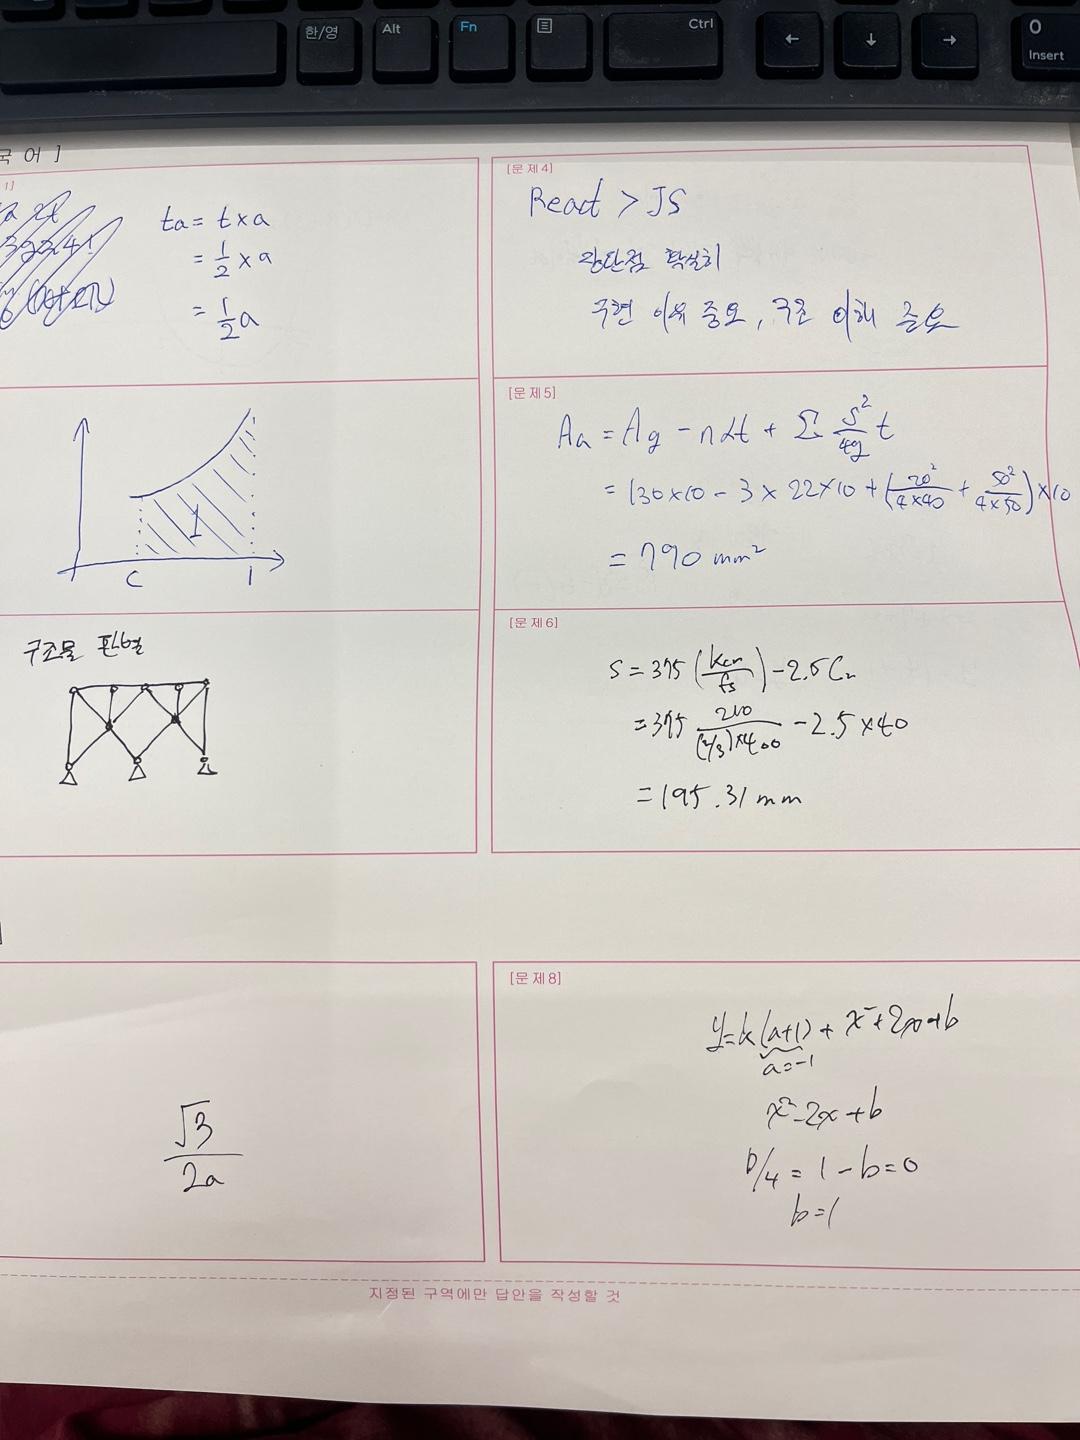 한/영
Alt
Fn
Ctrl
←
↓
→
0
Insert
국 어 ]
1]
ta = t x a
= 1/2 x a
= 1/2 a
[문제4]
React > JS
장단점 확실히
구현 이유 중요, 구조 이해 중요
C
1
1
[문제5]
An = Ag - ndt + Σ S²/4g t
= 130x10 - 3 x 22x10 + (20²/4x40 + 50²/4x50) x 10
= 790 mm²
구조물 판별
[문제6]
S = 375 (kcr/fs) - 2.5 Cc
= 375 210/(2/3)x400 - 2.5 x 40
= 195.31 mm
√3/2a
[문제8]
y = k(a+1) + x² + 2ax + b
a = -1
x² - 2x + b
D/4 = 1 - b = 0
b = 1
지정된 구역에만 답안을 작성할 것